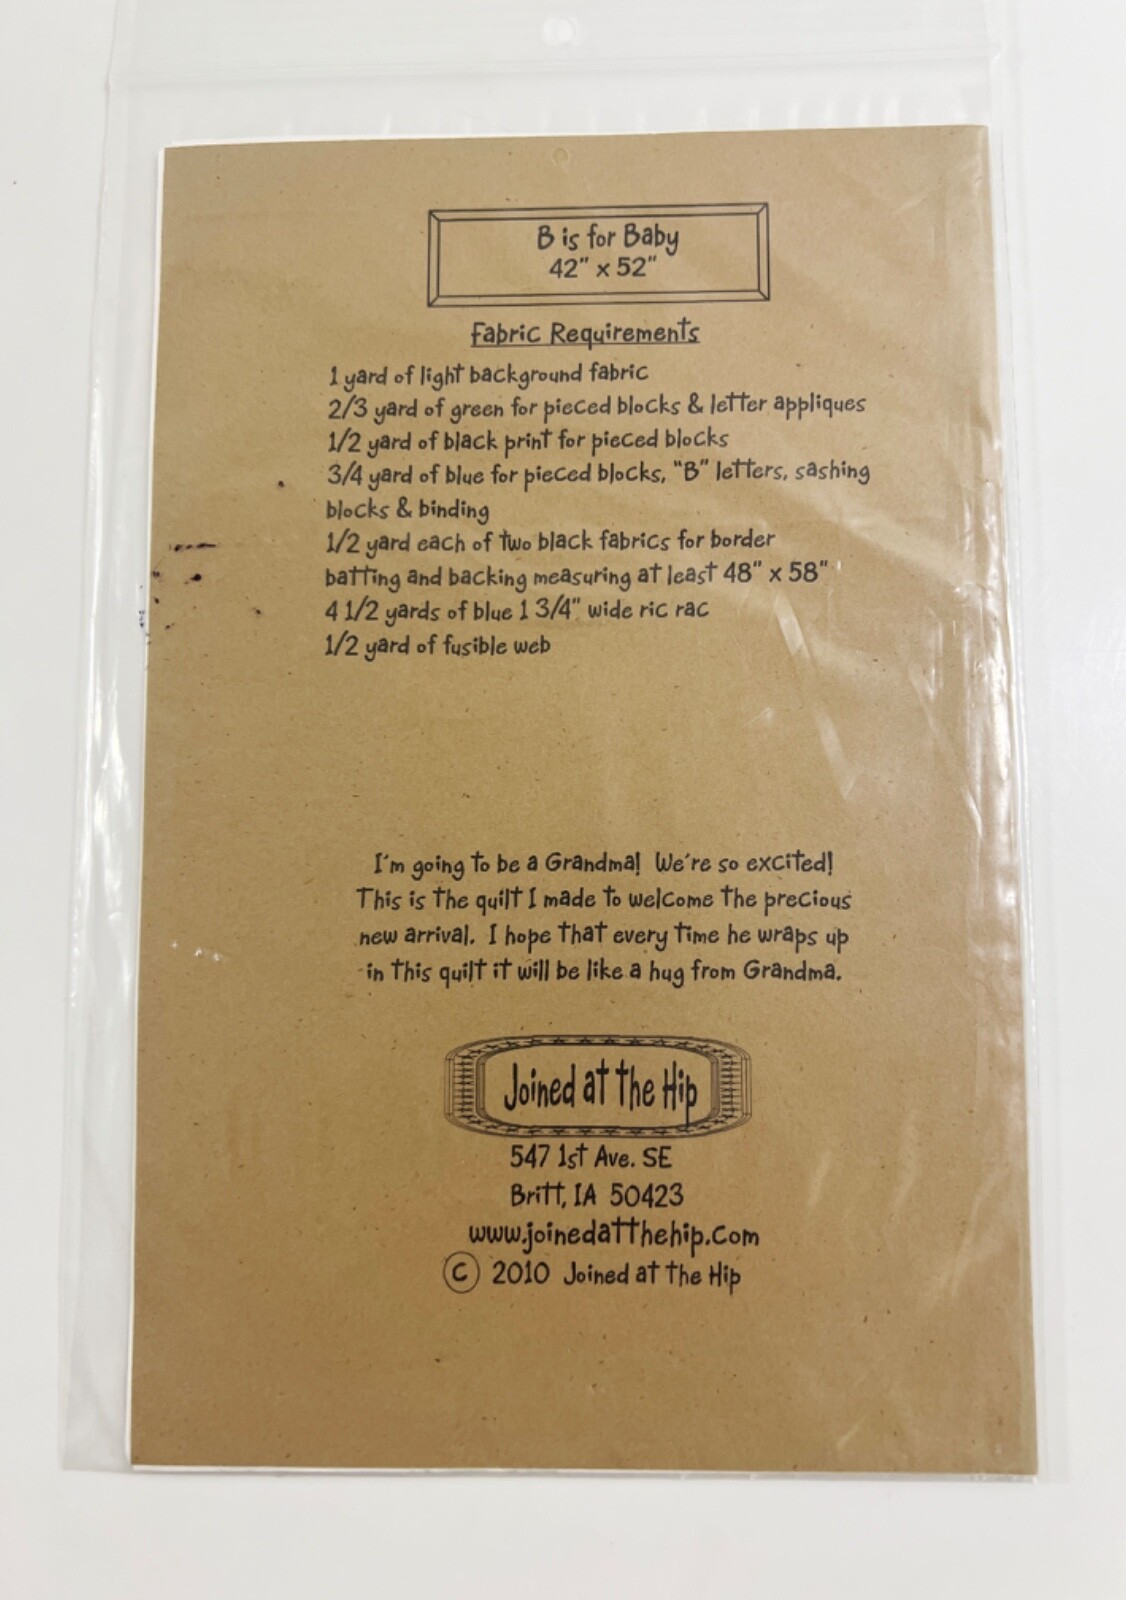 B is for Baby
42" x 52"
Fabric Requirements
1 yard of light background fabric
2/3 yard of green for pieced blocks & letter appliques
1/2 yard of black print for pieced blocks
3/4 yard of blue for pieced blocks, "B" letters, sashing
blocks & binding
1/2 yard each of two black fabrics for border
batting and backing measuring at least 48" x 58"
4 1/2 yards of blue 1 3/4" wide ric rac
1/2 yard of fusible web
I'm going to be a Grandma! We're so excited!
This is the quilt I made to welcome the precious
new arrival. I hope that every time he wraps up
in this quilt it will be like a hug from Grandma.
Joined at the Hip
547 1st Ave. SE
Britt, IA 50423
www.joinedatthehip.com
© 2010 Joined at the Hip